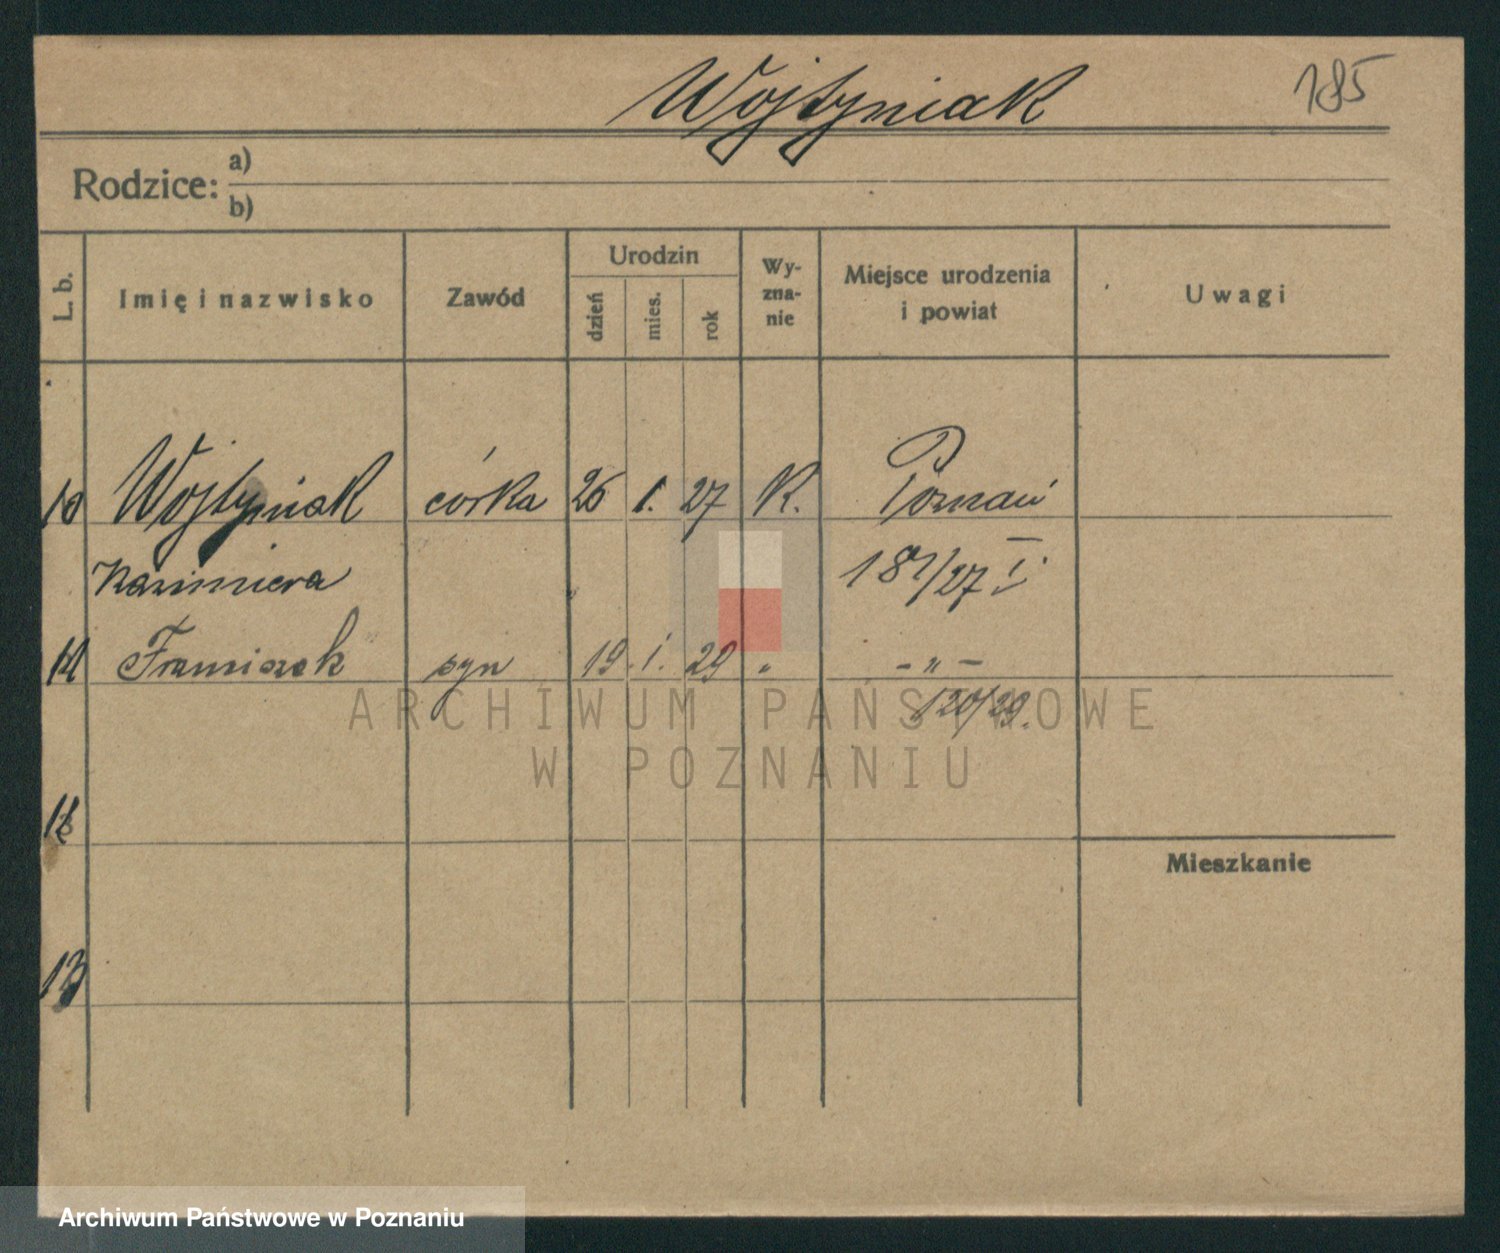 Wojtyniak 185
Rodzice: a)
b)
L. b. Imię i nazwisko Zawód Urodzin dzień mies. rok Wy-zna-nie Miejsce urodzenia i powiat Uwagi
10 Wojtyniak córka 26 1. 27 K. Poznań
Kazimiera 181/27 I.
11 Franciszek syn 19. 1. 29 " - " -
120/29.
ARCHIWUM PAŃSTWOWE
W POZNANIU
12
Mieszkanie
13
Archiwum Państwowe w Poznaniu